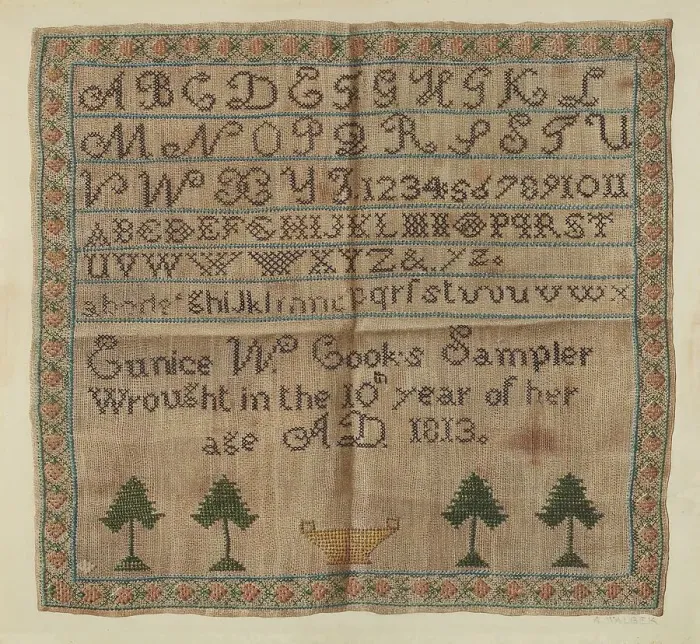 A B C D E F G H G K L
M N O P Q R S S T U
V W X Y Z.1234567891011
ABCDEFGHIJKL PQRST
UVW XYZ& YZ.
ghijkl pqrſstuvuvwx
Eunice W. Cook's Sampler
Wrought in the 10th year of her
age A.D. 1813.